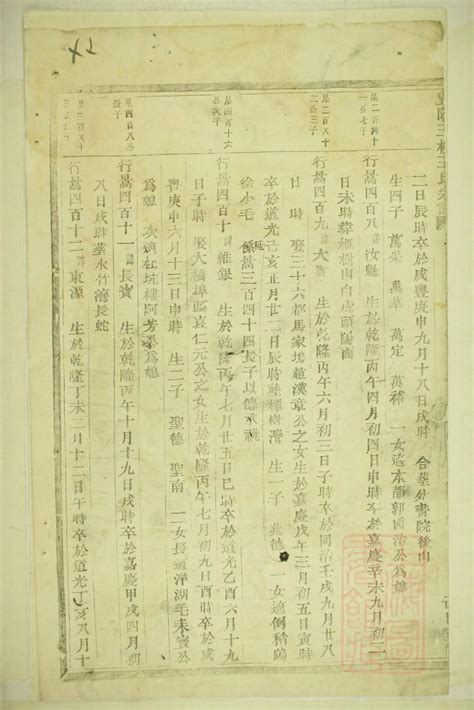 二日辰時卒於咸豐庚申九月十八日戌時 合塟外書院後山
生四子 萬榮 萬華 萬定 萬 一女適本都郭國治公爲媳
星二百四十
一公七子
行嵩四百八 諱汝魁 生於乾隆丙午四月初四日申時卒於嘉慶辛未九月初二
日未時塟 樹山白虎頭陽南
星二百八十
二公三子
行嵩四百九 諱大 生於乾隆丙午六月初二日子時卒於同治壬戌九月廿八
日 時 娶三十六都馬家塢趙漢章公之女生於嘉慶戊午三月初五日寅時
卒於道光己亥正月廿二日辰時 樹灣 生一子 兆德 一女適倒稍塢
徐小毛 繼嵩三百四十四長子以德承祧
星四百十六
公次子
行嵩四百十 諱維銀 生於乾隆丙午七月廿五日巳時卒於道光乙酉六月十九
日子時 娶大橋埠頭袁仁元公之女生於乾隆丙午七月初九日酉時卒於咸
豐庚申六月十三日申時 生二子 聖德 聖南 二女長適洋湖毛未實公
爲媳 次適杜坑樓阿芳公爲媳
星四百八公
長子
行嵩四百十一 諱長賓 生於乾隆丙午十月十九日戌時卒於嘉慶甲戌四月初
八日戌時塟水竹灣長蛇
行嵩四百十二 諱東源 生於乾隆丁未二月十二日午時卒於道光丁亥八月十